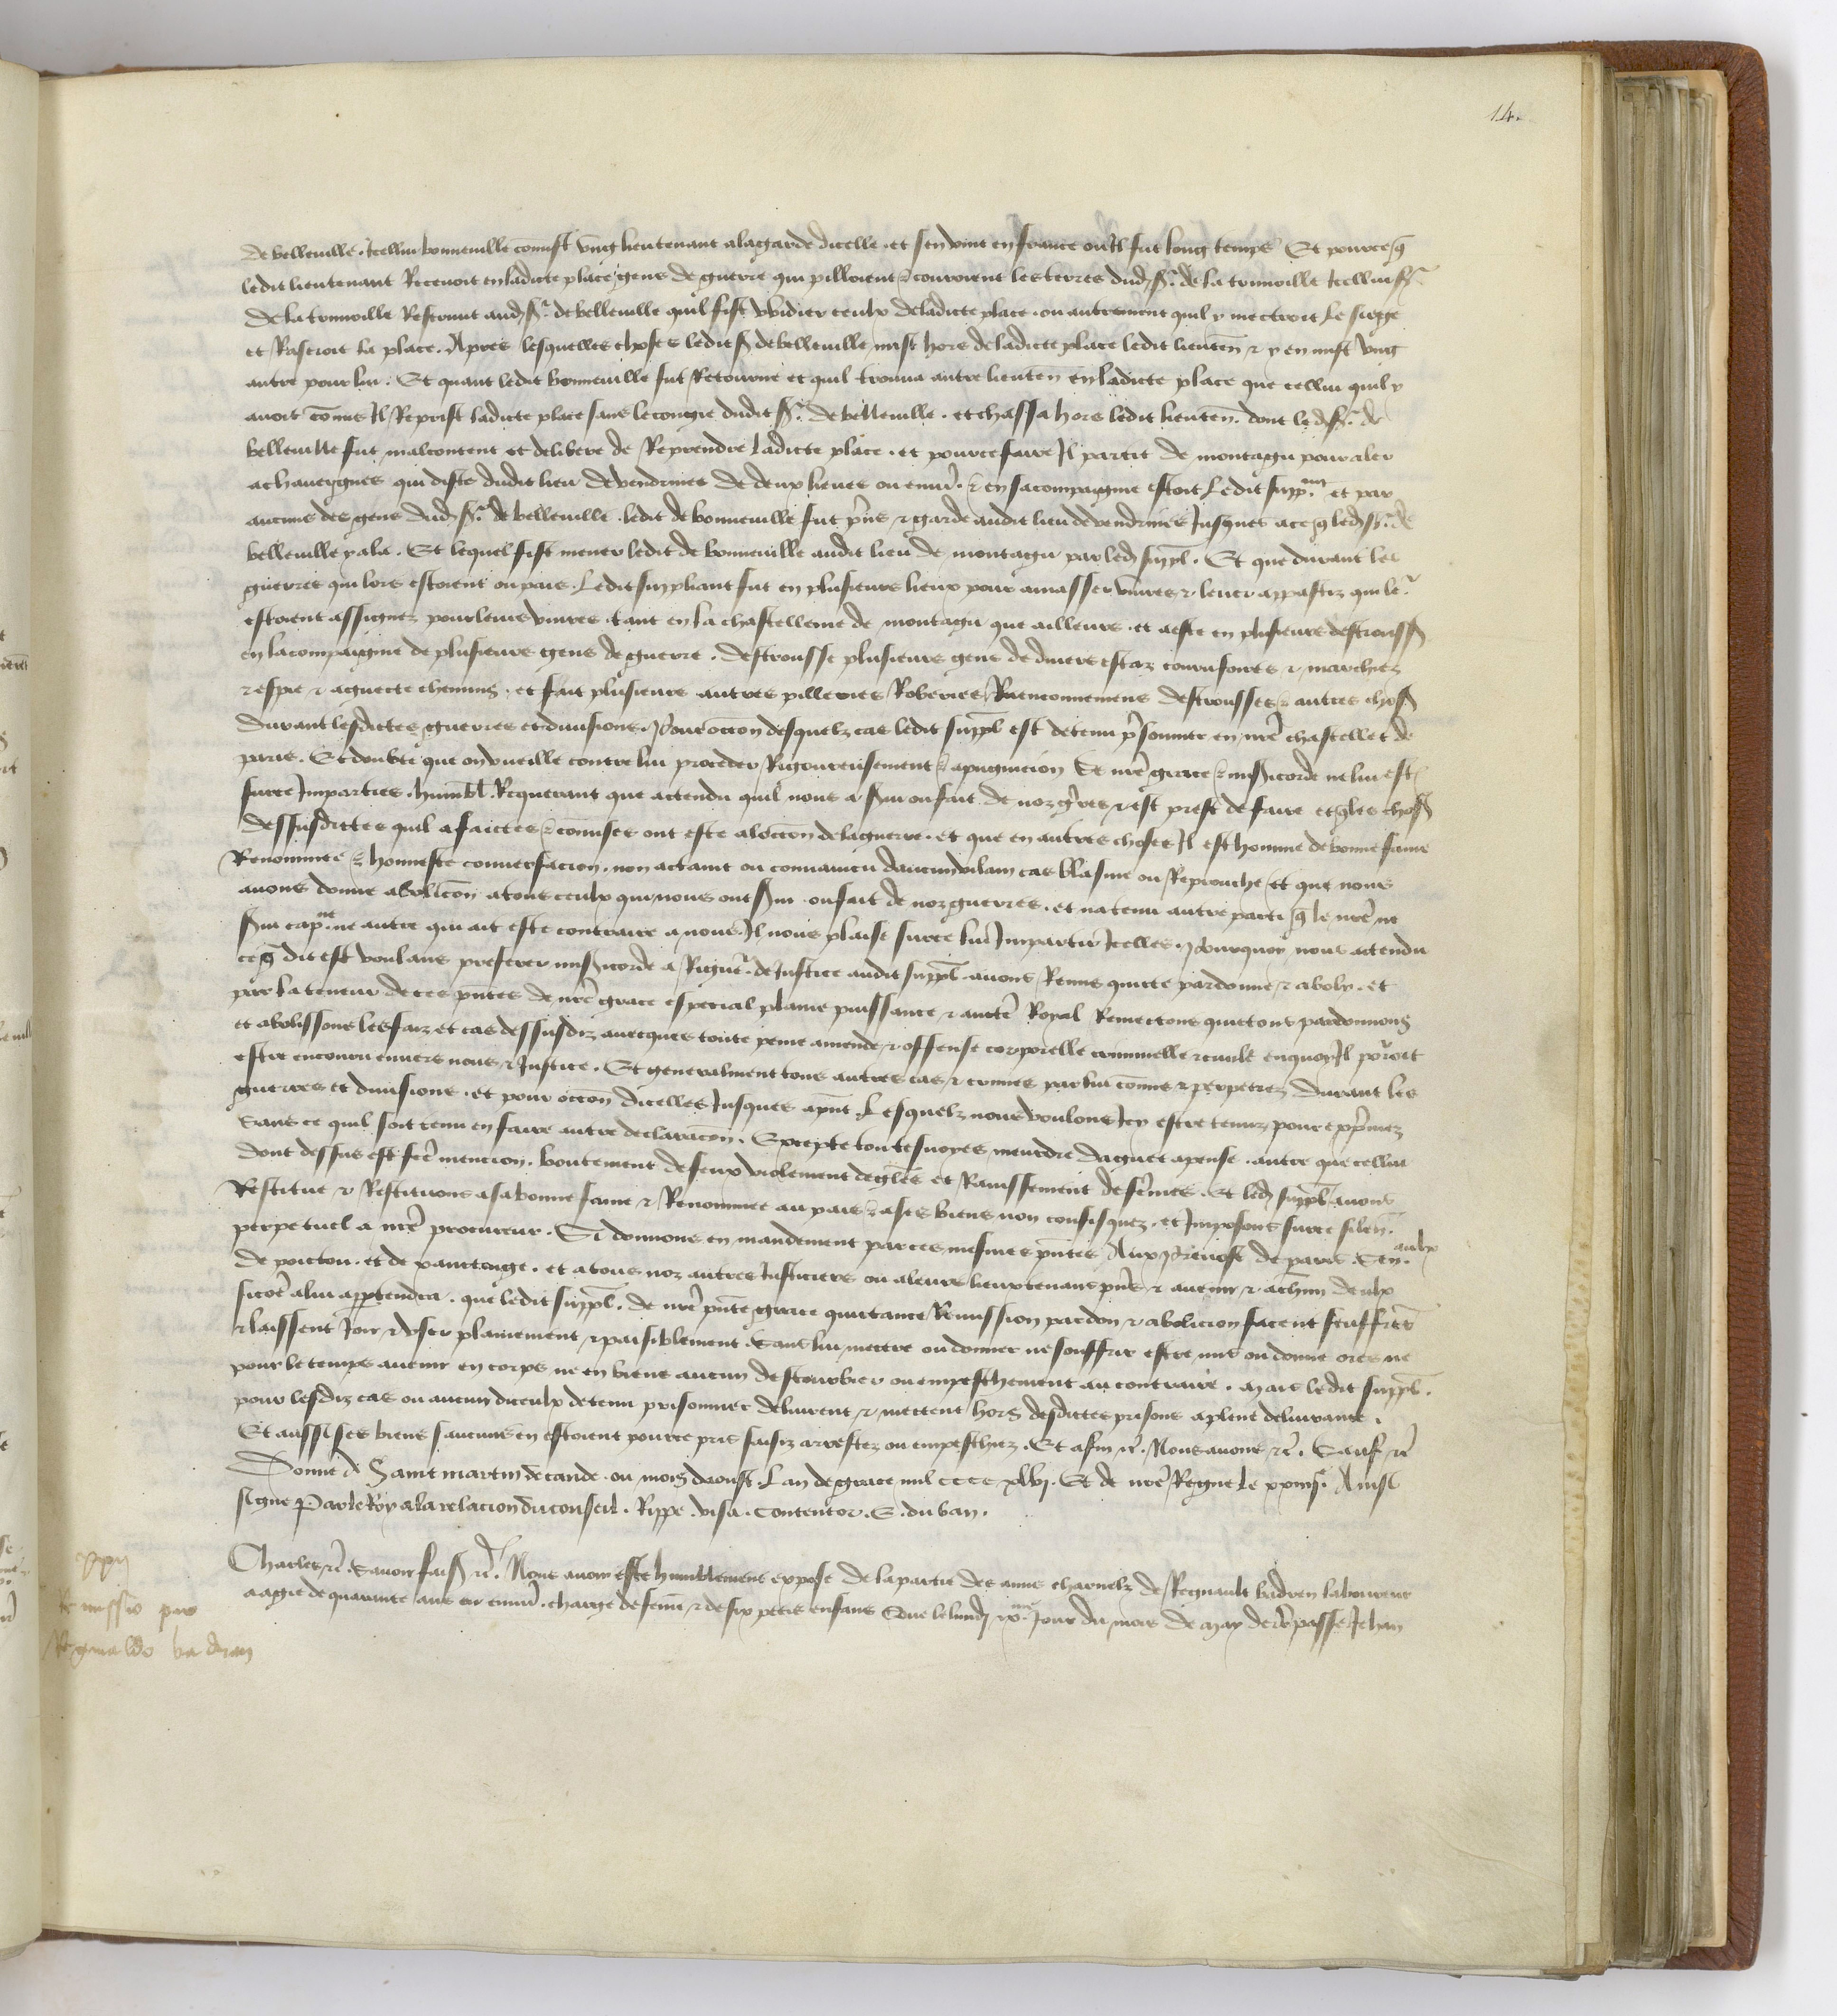 14.
de belleville . Icellui bonneville commist ung lieutenant a la garde dicelle . et sen vint en france ou Il fut long temps Et pource q̄
ledit lieutenant Recevoit en ladicte place gens de guerre qui pilloient & couroient les terres dud sr de la trimoille Icellui sr
de la trimoille Rescrivit aud sr de belleville quil fist vuidier ceulx de ladicte place . ou autrement quil y mectroit le siege
et Raseroit la place . Apres lesquelles choses ledit sr de belleville mist hors de ladicte place ledit lieuten̄ & y en mist ung
autre pour lui . Et quant ledit bonneville fut Retourne et quil trouva autre lieuten̄ en ladicte place que cellui quil y
avoit cōmis Il Reprist ladicte place sans le congie dudit sr de belleville . et chassa hors ledit lieuten̄ . dont led sr de
belleville fut malcontent et delibere de Reprendre ladicte place . et pource faire Il partit de montagu pour aler
a chavergnes qui diste dudit lieu de vendrines de deux lieues ou envir̄ . & en sa compaignie estoit ledit suppant et par
aucuns des gens dud sr de belleville . ledit de bonneville fut prins & garde audit lieu de vendrines Jusques a ce q̄ led sr de
belleville y ala . Et lequel fist mener ledit de bonneville audit lieu de montagu par led suppl . Et que durant les
guerres qui lors estoient ou pais . Ledit suppliant fut en plusieurs lieux pour amasser vivres & lever appastiz qui le^r
estoient assignez pour leurs vivres . tant en la chastellenie de montagu que ailleurs . et a este en plusieurs destrousses
en la compaignie de plusieurs gens de guerre . destrousse plusieurs gens de divers estaz couru foires & marchiez
& espie & aguecte chemins . et fait plusieurs autres pilleries Roberies Raenconnemens destrousses & autres choses
durant lesdictes guerres et divisions . Pour occon̄ desquelz cas ledit suppl est detenu prisonnier en nr̄e chastellet de
paris . Et doubte que on vueille contre lui proceder Rigoureusement & a pugnicion se nr̄e grace & misericorde ne lui est
surce Impartie . humbl Requerant que actendu quil nous a servi ou fait de noz g̃res & est prest de faire et q̄ les choses
dessusdictes quil a faictes & cōmises ont este a loccon̄ de la guerre . et que en autres choses Il est homme de bonne fame
Renommee & honneste conversacion . non actaint ou convaincu daucun vilain cas blasme ou Reprouche et que nous
avons donne abolicōn a tous ceulx qui nous ont servi ou fait de noz guerres . et na tenu autre parti q̄ le nr̄e ne
servi capne ne autre qui ait este contraire a nous . Il nous plaise surce lui Impartir Icelles . Pourquoy nous actendu
ce q̄ dit est voulans preferer misericorde a Rigueur de Justice audit suppl avons Remis quicte pardonne & aboly . et
par la teneur de ces pn̄tes de nr̄e grace especial plaine puissance & aucte Royal Remectons quictons pardonnons
et abolissons les faiz et cas dessusdiz avecques toute peine amende & offense corporelle criminelle & civile en quoy Il pourroit
estre encouru envers nous & Justice . Et generalment tous autres cas & crimes par lui cōmis & perpetrez durant les
guerres et divisions . et pour occon̄ dicelles Jusques a pn̄t . Lesquelz nous voulons Icy estre tenuz pour exprimez
Sans ce quil soit tenu en faire autre declaracōn . Excepte toutesvoyes meurdre daguet apense . autre que cellui
dont dessus est fc̄e mencion . boutement de feux violement deglises et Ravissement de fēmes . Et led suppl avons
Restitue & Restituons a sa bonne fame & Renommee au pais & a ses biens non confisquez . et Imposons surce silen̄
perpetuel a nr̄e procureur . Si donnons en mandement par ces mesmes pn̄tes Aux Prevost de paris . Sen aulx
de poictou . et de xanctonge . et a tous noz autres Justiciers ou a leurs lieuxtenans pn̄s & avenir & a chūn deulx
sicōe a lui appartendra . que ledit suppl . de nr̄e pn̄te grace quictance Remission pardon & abolicion facent seuffrēt
& laissent Joir & user plainement & paisiblement . Sans lui mectre ou donner ne souffrir estre mis ou donne ores ne
pour le temps avenir en corps ne en biens aucun destourbier ou empeschement au contraire . Mais ledit suppl .
pour lesdiz cas ou aucun diceulx detenu prisonnier delivrent & mectent hors desdictes prisons a plene delivrance .
Et aussi ses biens saucuns en estoient pource pris saisiz arrestez ou empeschiez . Et afin &c̄ . Nous avons &c̄ . Sauf &c̄
Donne a Saint martin de cande . ou mois daoust . Lan de grace mil cccc xlvj . Et de nr̄e Regne le xxiiije . Ainsi
signe Par le Roy a la relacion du conseil . Rippe . visa . contentor . E . du ban .
xxij
Remissio pro
Reginaldo badran
Charles &c̄ . Savoir faisons &c̄ . Nous avoir este humblement expose de la partie des amis charnelz de Regnault badren laboureur
aagie de quarante ans ou envir̄ . charge de femē & de six petis enfans Que le lundi jour du mois de May derr̄ passe Jehan